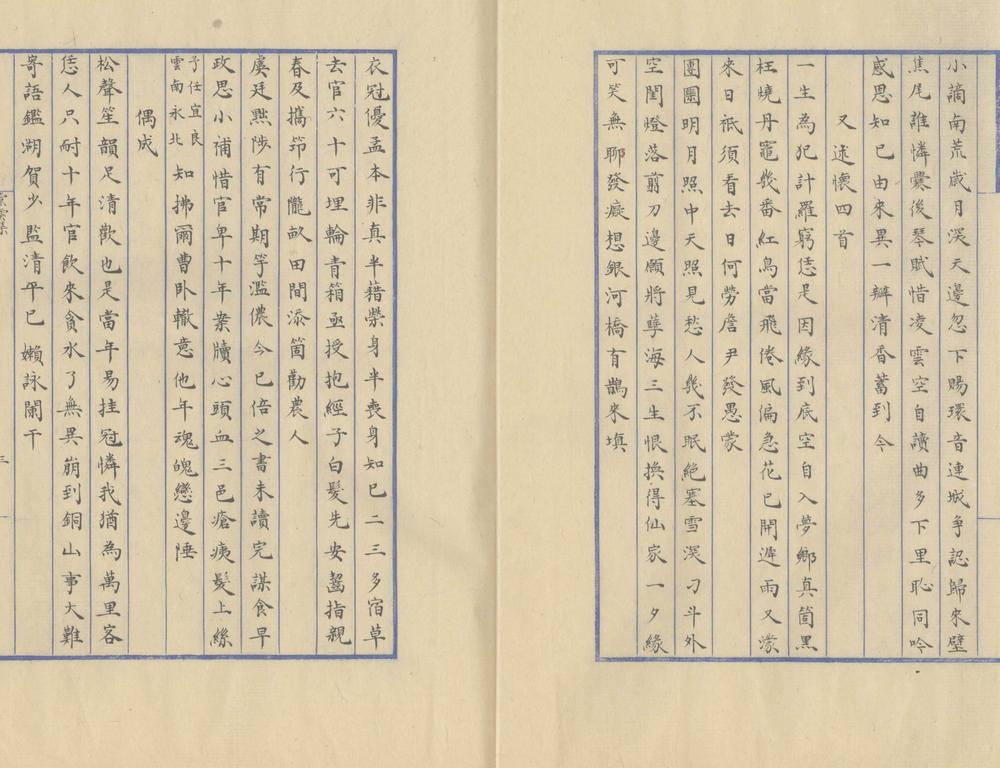 小謫南荒歲月深天邊忽下賜環音連城爭認歸來璧
焦尾誰憐爨後琴賦惜凌雲空自讀曲多下里恥同吟
感恩知己由來異一瓣清香蓄到今
又述懷四首
一生為犯計羅窮恁是因緣到底空自入夢鄉真箇黑
枉燒丹竈幾番紅鳥當飛倦風偏急花已開遲雨又濛
來日祇須看去日何勞詹尹發愚蒙
團團明月照中天照見愁人幾不眠絕塞雪深刁斗外
空閨燈落剪刀邊願將孽海三生恨換得仙家一夕緣
可笑無聊發癡想銀河橋有鵲來填
衣冠優孟本非真半藉榮身半喪身知己二三多宿草
去官六十可埋輪青箱亟授抱經子白髮先安齧指親
春及攜筇行隴畝田間添箇勸農人
虞廷黜陟有常期竽濫儂今已倍之書未讀完謀食早
政思小補惜官卑十年案牘心頭血三邑瘡痍髮上絲
予任宜良
雲南永北
知拂爾曹臥轍意他年魂魄戀邊陲
偶成
松聲笙韻足清歡也是當年易挂冠憐我猶為萬里客
恁人只耐十年官飲來貪水了無異崩到銅山事大難
寄語鑑湖賀少監清平已嬾詠闌干
三